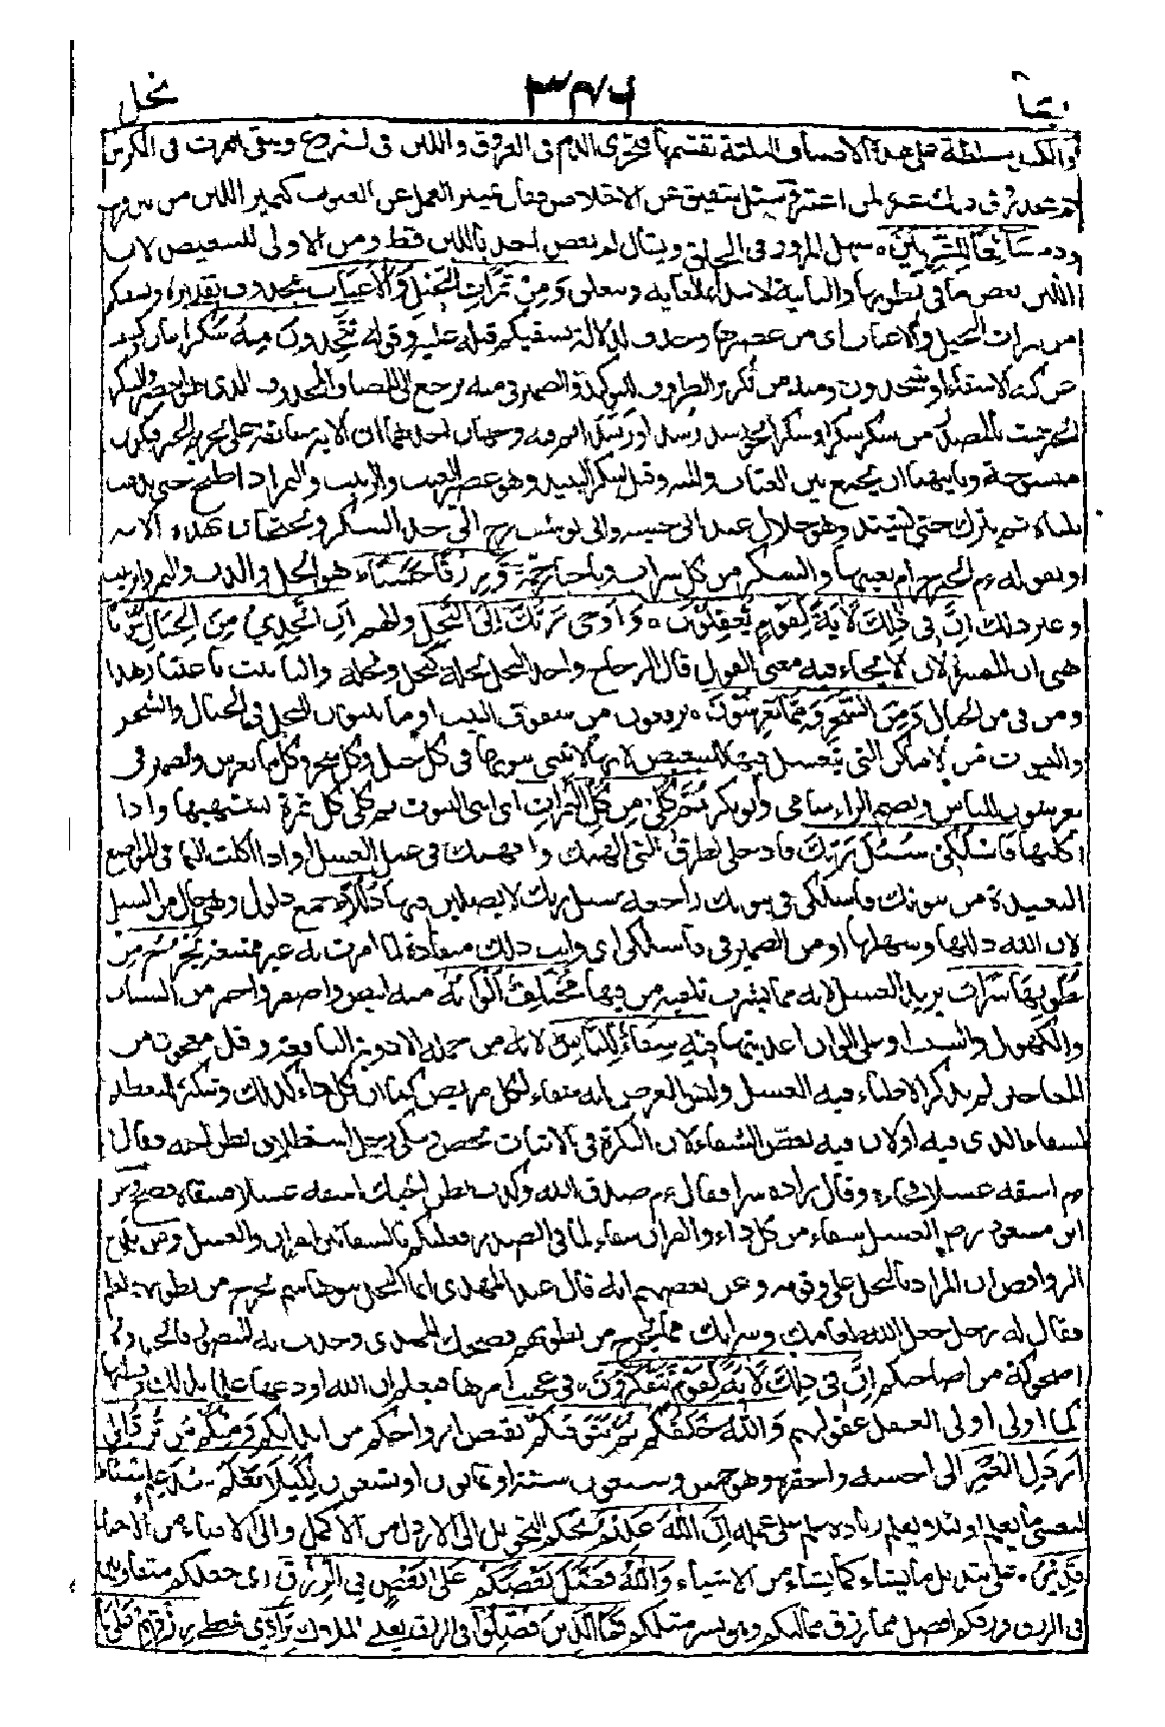 ربما ٣٧٦ نحل
والكبد مسلطة على هذه الاصناف الثلثة تقسمها فتجرى الدم فى العروق واللبن فى الضرع ويبقى الفرث فى الكرش
ثم ينحدر وفى ذلك عبرة لمن اعتبر وسئل شقيق عن الاخلاص فقال تمييز العمل من العيوب كتمييز اللبن من بين فرث
ودم سَائِغًا لِلشَّارِبِينَ سهل المرور فى الحلق ويقال لم يغص احد باللبن قط ومن الاولى للتبعيض لان
اللبن بعض ما فى بطونها والثانية لابتداء الغاية ويتعلق وَمِنْ ثَمَرَاتِ النَّخِيلِ وَالْأَعْنَابِ بمحذوف تقديره ونسقيكم
من ثمرات النخيل والاعناب اى من عصيرها وحذف لدلالة نسقيكم قبله عليه وقوله تَتَّخِذُونَ مِنْهُ سَكَرًا بيان وكشف
عن كنه الاسقاء او تتخذون ومنه من تكرير الظرف للتوكيد والضمير فى منه يرجع الى المضاف المحذوف الذى هو العصير والسكر
الخمر سميت بالمصدر من سكر سكرا وسكرا نحو رشد رشدا ورشدا ثم فيه وجهان احدهما ان الاية سابقة على تحريم الخمر فيكون
منسوخة وثانيهما ان يجمع بين العتاب والمنة وقيل السكر النبيذ وهو عصير العنب والزبيب والتمر اذا طبخ حتى يذهب
ثلثاه ثم يترك حتى يشتد وهو حلال عند ابى حنيفة وابى يوسف رح الى حد السكر ويحتجان بهذه الاية
وبقوله عم الخمر حرام بعينها والسكر من كل شراب وباخبار جمة وَرِزْقًا حَسَنًا هو الخل والرب والتمر والزبيب
وغير ذلك إِنَّ فِى ذَلِكَ لَآيَةً لِقَوْمٍ يَعْقِلُونَ وَأَوْحَى رَبُّكَ إِلَى النَّحْلِ والهم أَنِ اتَّخِذِي مِنَ الْجِبَالِ بُيُوتًا
هى ان المفسرة لان الايحاء فيه معنى القول قال الزجاج واحد النحل نحلة كنخل ونخلة والتانيث باعتبار هذا
ومن فى من الجبال وَمِنَ الشَّجَرِ وَمِمَّا يَعْرِشُونَ يرفعون من سقوف البيت او ما يبنون للنحل فى الجبال والشجر
والبيوت من الاماكن التى تتعسل فيها للتبعيض لانها لا تبنى بيوتها فى كل جبل وكل شجر وكل ما يعرش والضمير فى
يعرشون للناس وبضم الراء شامى وابو بكر ثُمَّ كُلِي مِنْ كُلِّ الثَّمَرَاتِ اى ابنى البيوت ثم كلى كل ثمرة تشتهيها واذا
اكلتها فَاسْلُكِي سُبُلَ رَبِّكِ فادخلى الطرق التى الهمك وافهمك فى عمل العسل او اذا اكلت الثمار فى المواضع
البعيدة من بيوتك فاسلكى الى بيوتك راجعة سبل ربك لا تضلين فيها ذُلُلًا جمع ذلول وهى حال من السبل
لان الله ذللها وسهلها او من الضمير فى فاسلكى اى وانت ذلل منقادة لما امرت به غير ممتنعة يَخْرُجُ مِنْ
بُطُونِهَا شَرَابٌ يريد العسل لانه مما يشرب تلقيه من فيها مُخْتَلِفٌ أَلْوَانُهُ منه ابيض واصفر واحمر من الشباب
والكهول والشيب او على الوان اغذيتها فِيهِ شِفَاءٌ لِلنَّاسِ لانه من جملة الادوية النافعة وقل معجون من
المعاجين لم يذكر الاطباء فيه العسل وليس الغرض انه شفاء لكل مريض كما ان كل دواء كذلك وتنكيره لتعظيم
الشفاء الذى فيه او لان فيه بعض الشفاء لان النكرة فى الاثبات تخص وشكى رجل استطلاق بطن اخيه فقال
عم اسقه عسلا فجاءه وقال زاده شرا فقال عم صدق الله وكذب بطن اخيك اسقه عسلا فسقاه فصح وعن
ابن مسعود رضه العسل شفاء من كل داء والقران شفاء لما فى الصدور فعليكم بالشفائين القران والعسل ومن بدع
الروافض ان المراد بالنحل على وقومه وعن بعضهم انه قال عند المهدى انما النحل بنو هاشم يخرج من بطونهم العلم
فقال له رجل جعل الله طعامك وشرابك مما يخرج من بطونهم فضحك المهدى وحدث به المنصور فاتخذوه
اضحوكة من اضاحيكهم إِنَّ فِى ذَلِكَ لَآيَةً لِقَوْمٍ يَتَفَكَّرُونَ فى عجيب امرها فيعلمون ان الله اودعها علما بذلك وفطنها
كما اولى اولى العقول عقولهم وَاللَّهُ خَلَقَكُمْ ثُمَّ يَتَوَفَّاكُمْ بقبض ارواحكم من ابدانكم وَمِنْكُمْ مَنْ يُرَدُّ إِلَى
أَرْذَلِ الْعُمُرِ الى اخسه واحقره وهو خمس وسبعون سنة او ثمانون او تسعون لِكَيْلَا يَعْلَمَ بَعْدَ عِلْمٍ شَيْئًا
لينسى ما يعلم او لئلا يعلم زيادة علم على علمه إِنَّ اللَّهَ عَلِيمٌ بحكم التحويل الى الارذل من الاكمل والى الافناء من الاحياء
قَدِيرٌ على تبديل ما يشاء كما يشاء من الاشياء وَاللَّهُ فَضَّلَ بَعْضَكُمْ عَلَى بَعْضٍ فِي الرِّزْقِ اى جعلكم متفاوتين
فى الرزق فرزقكم افضل مما رزق مماليككم وهم بشر مثلكم فَمَا الَّذِينَ فُضِّلُوا فى الرزق يعنى الملاك بِرَادِّي بمعطى رِزْقِهِمْ عَلَى مَا